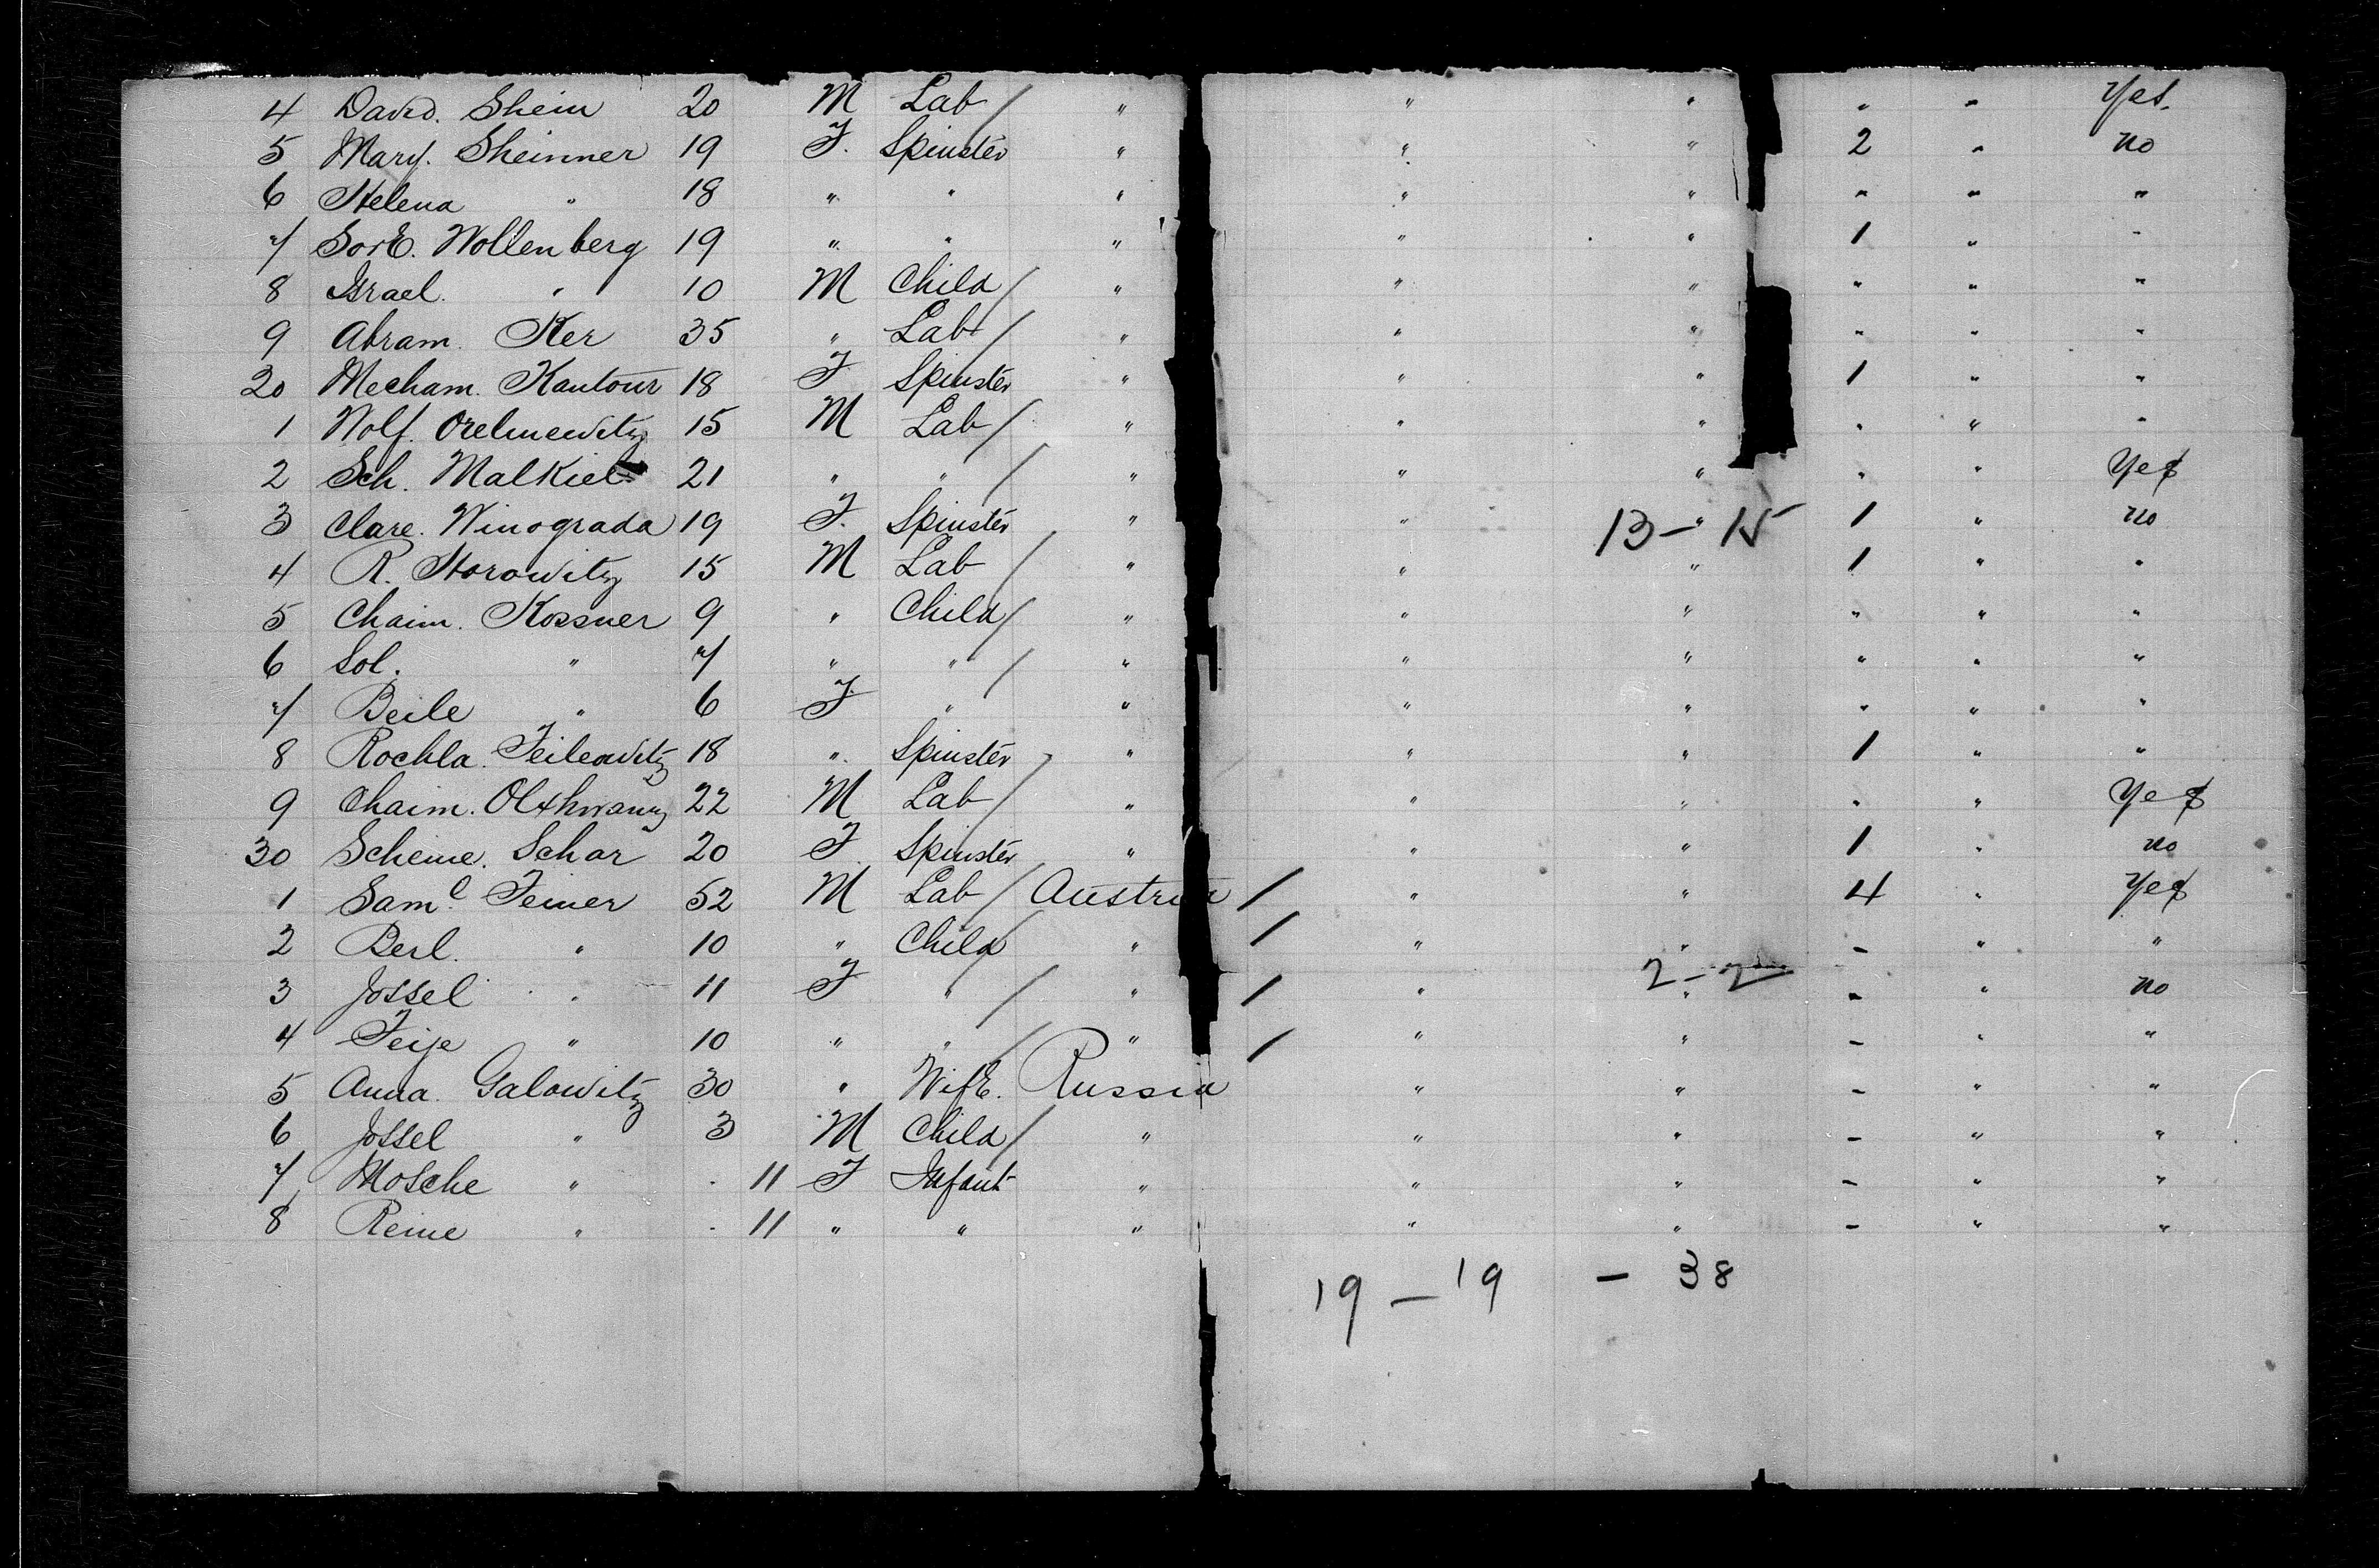 4 David. Shein 20 M Lab / " " " " " Yes.
5 Mary. Sheinner 19 F. Spinster " " " 2 " no
6 Helena " 18 " " " " " " " "
7 Sore. Wollenberg 19 " " " " " 1 " "
8 Israel. " 10 M Child / " " " " " "
9 Abram. Ker 35 " Lab / " " " " " "
20 Mecham. Kantour 18 F Spinster " " " 1 " "
1 Wolf. Orelmewitz 15 M Lab / " " " " " "
2 Sch. Malkiel 21 " " / " " " " " Yes
3 Clare. Winograda 19 F. Spinster " " " 1 " no
13 - 15
4 R. Horowitz 15 M Lab / " " " 1 " "
5 Chaim. Kossner 9 " Child / " " " " " "
6 Sol. " 7 " " / " " " " " "
7 Beile " 6 F " " " " " " "
8 Rochla. Feilewitz 18 " Spinster " " " 1 " "
9 Chaim. 22 M Lab / " " " " " Yes
30 Scheine. Schar 20 F Spinster " " " 1 " no
1 Saml. Feiner 52 M Lab / Austria / " " 4 " Yes
2 Berl. " 10 " Child / " / " " - " "
2 - 2
3 Jossel " 11 F " / " / " " - " no
4 Feije " 10 " " / " / " " - " "
5 Anna. Galowitz 30 " Wife. Russia " " - " "
6 Jossel " 3 M Child / " " " - " "
7 Mosche " . 11 F Infant " " " - " "
8 Reine " . 11 " " " " " - " "
19 - 19 - 38